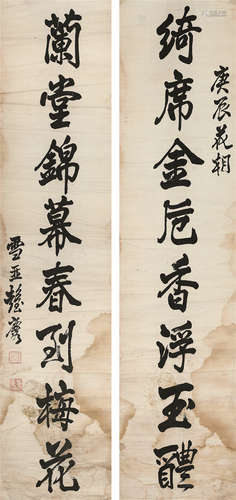 庚辰花朝
綺席金卮香浮玉醴
蘭堂錦幕春到梅花